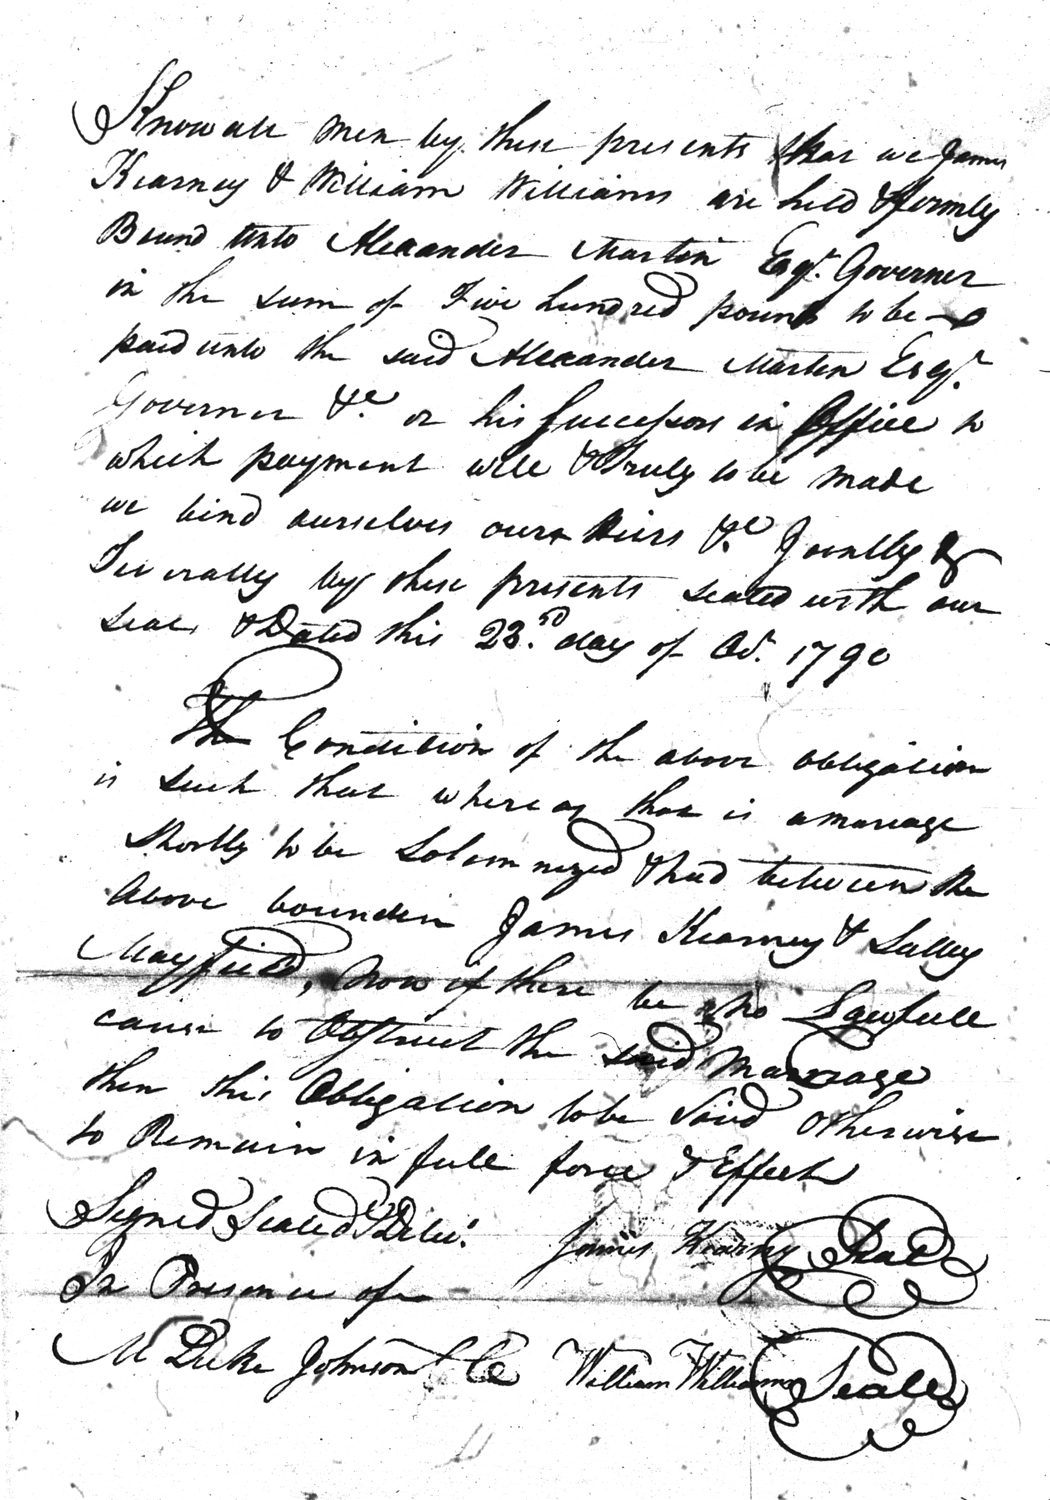 Know all men by these presents that we James
Kearney & William Williams are held & firmly
Bound unto Alexander Martin Esqr. Governer
in the sum of Five hundred pounds to be
paid unto the said Alexander Martin Esqr.
Governer &c. or his Successors in Office to
which payment well & truly to be made
we bind ourselves our Heirs &c. Jointly &
Severally by these presents sealed with our
seals & Dated this 23rd. day of Oct. 1790
The Condition of the above obligation
is such that whereas thar is a mareage
Shortly to be Solemnezed & had between the
Above bounden James Kearney & Salley
Mayfield, Now if there be no Lawfull
cause to Obstruct the said Marrage
then this Obligation to be Void otherwise
to Remain in full force & Effect
Signed Sealed & Deliv.
In Presence of
James Kearny Seal
M Duke Johnson CC
William Williams Seale